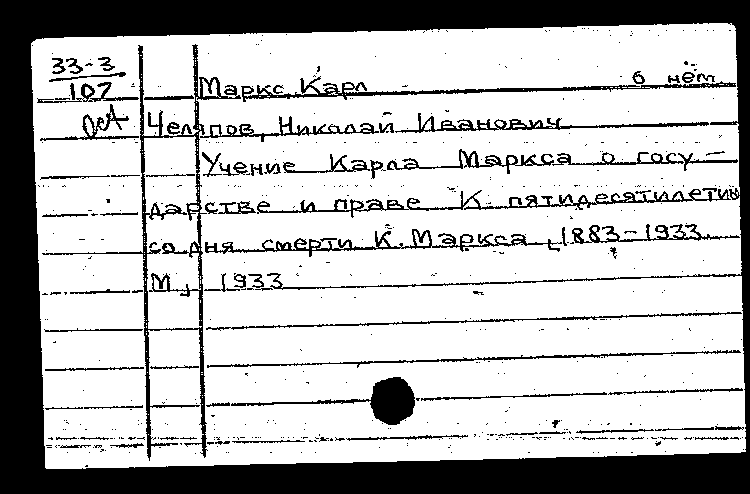 33-3
107
Маркс, Карл о нем
Челяпов, Николай Иванович
Учение Карла Маркса о госу-
дарстве и праве К пятидесятилетию
со дня смерти К. Маркса, 1883-1933.
М., 1933